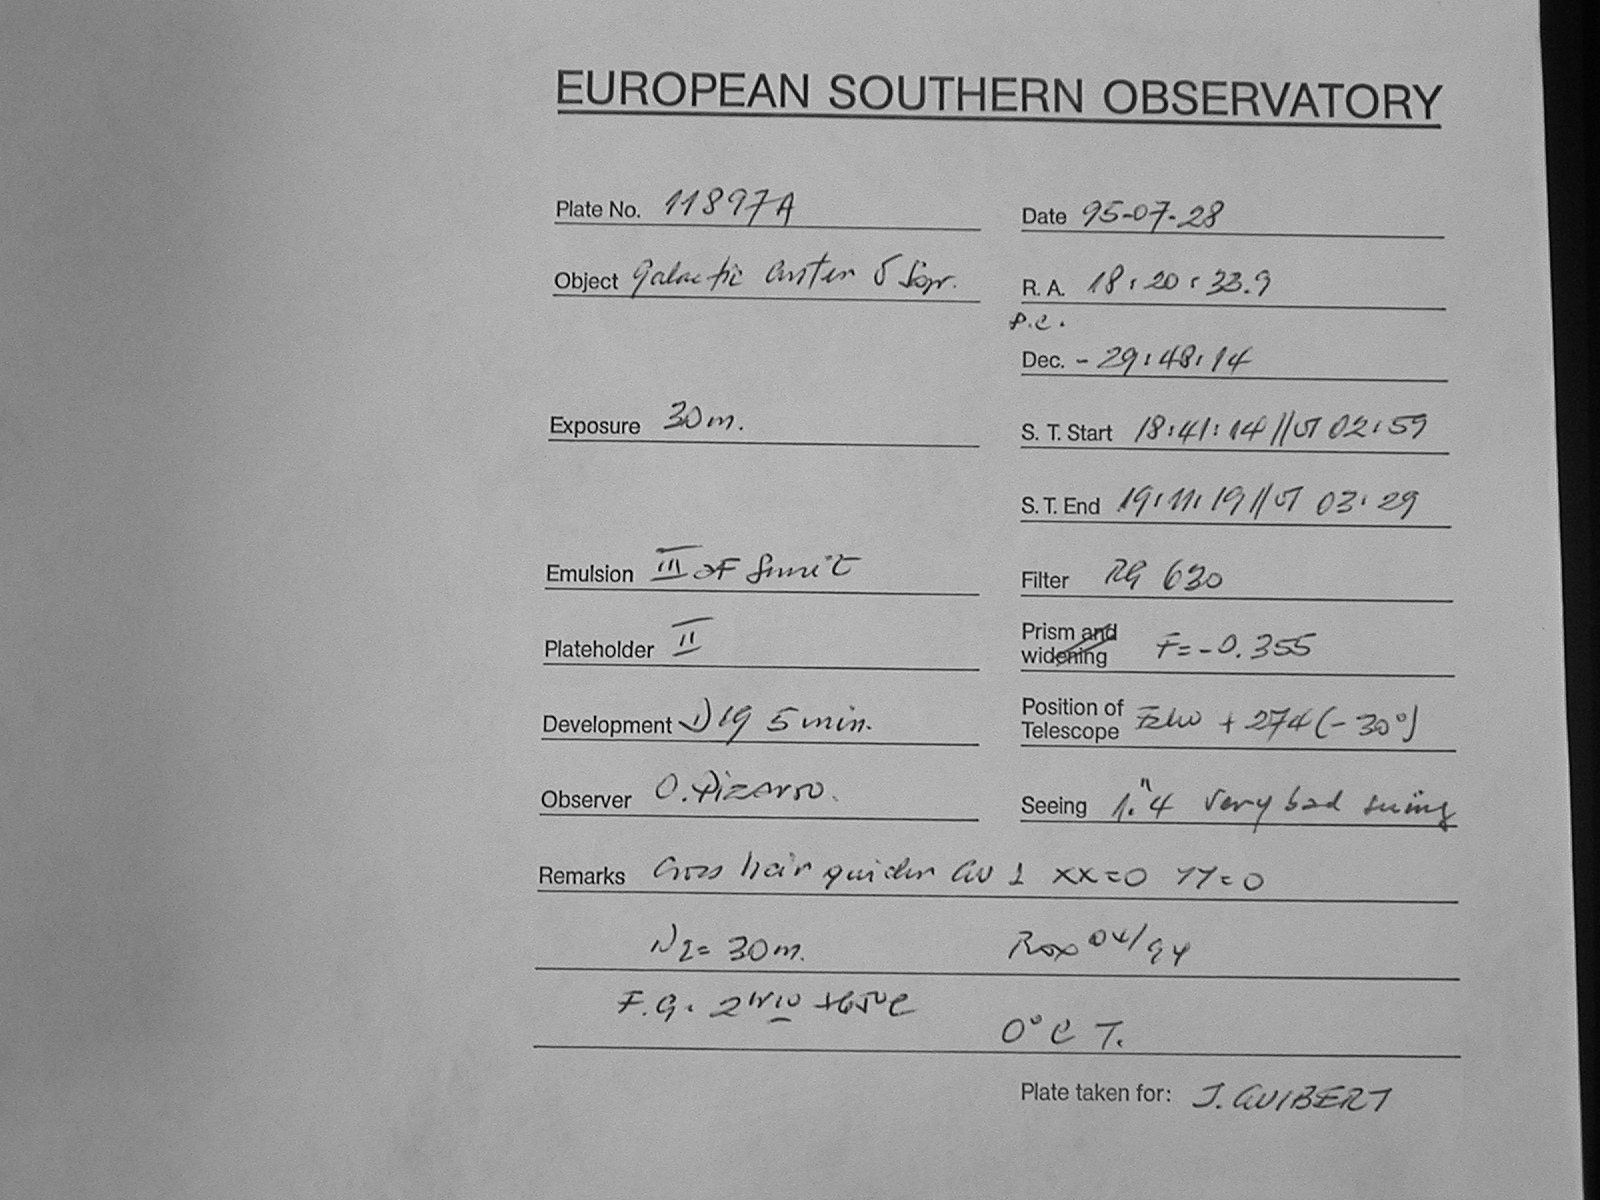 EUROPEAN SOUTHERN OBSERVATORY
Plate No. 11897A
Date 95-07-28
Object galactic 5
R. A. 18:20:33.9
p.c.
Dec. - 29:48:14
Exposure 30m.
S. T. Start 18:41:14 // UT 02:59
S. T. End 19:11:19 // UT 03:29
Emulsion III aF
Filter RG 630
Plateholder II
Prism and widening F=-0.355
Development D19 5 min.
Position of Telescope + 274 (-30°)
Observer O. Pizarro.
Seeing 1."4 very bad seeing
Remarks Cross hair guider GU 1 XX=0 YY=0
N2= 30m.
04/94
F.G. +65°C
0°C T.
Plate taken for: J. GUIBERT